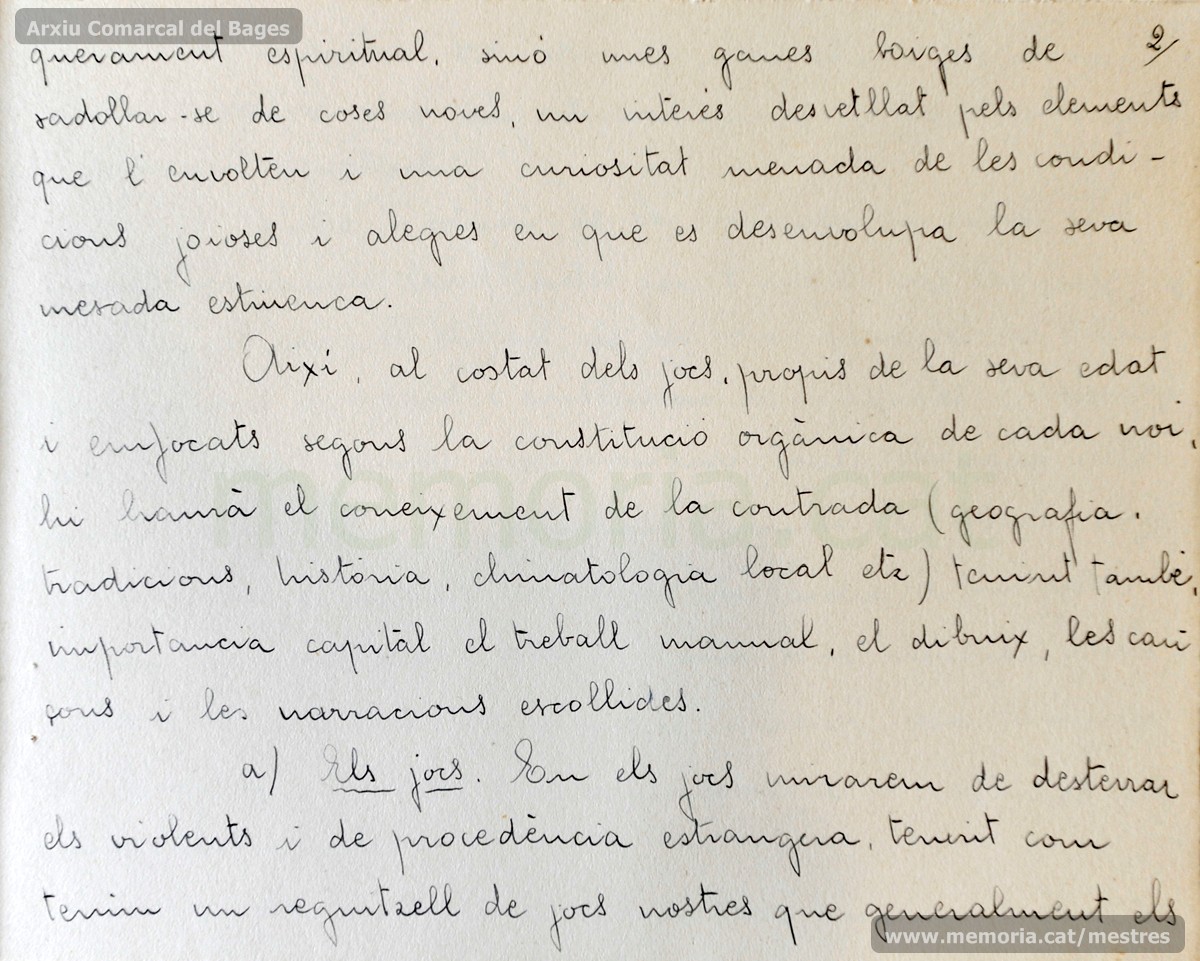 Arxiu Comarcal del Bages
2/
querament espiritual, sinó unes ganes boiges de
sadollar-se de coses noves, un interés desvetllat pels elements
que l'envoltèn i una curiositat menada de les condi-
cions joioses i alegres en que es desenvolupa la seva
mesada estiuenca.
Així, al costat dels jocs, propis de la seva edat
i emfocats segons la constitució orgànica de cada noi,
hi haurà el coneixement de la contrada (geografia,
tradicions, història, climatologia local etz) tenint també,
importancia capitàl el treball manual, el dibuix, les can
çons i les narracions escollides.
a) Els jocs. En els jocs mirarem de desterrar
els violents i de procedència estrangera, tenint com
tenim un reguitzell de jocs nostres que generalment els
memoria.cat
www.memoria.cat/mestres